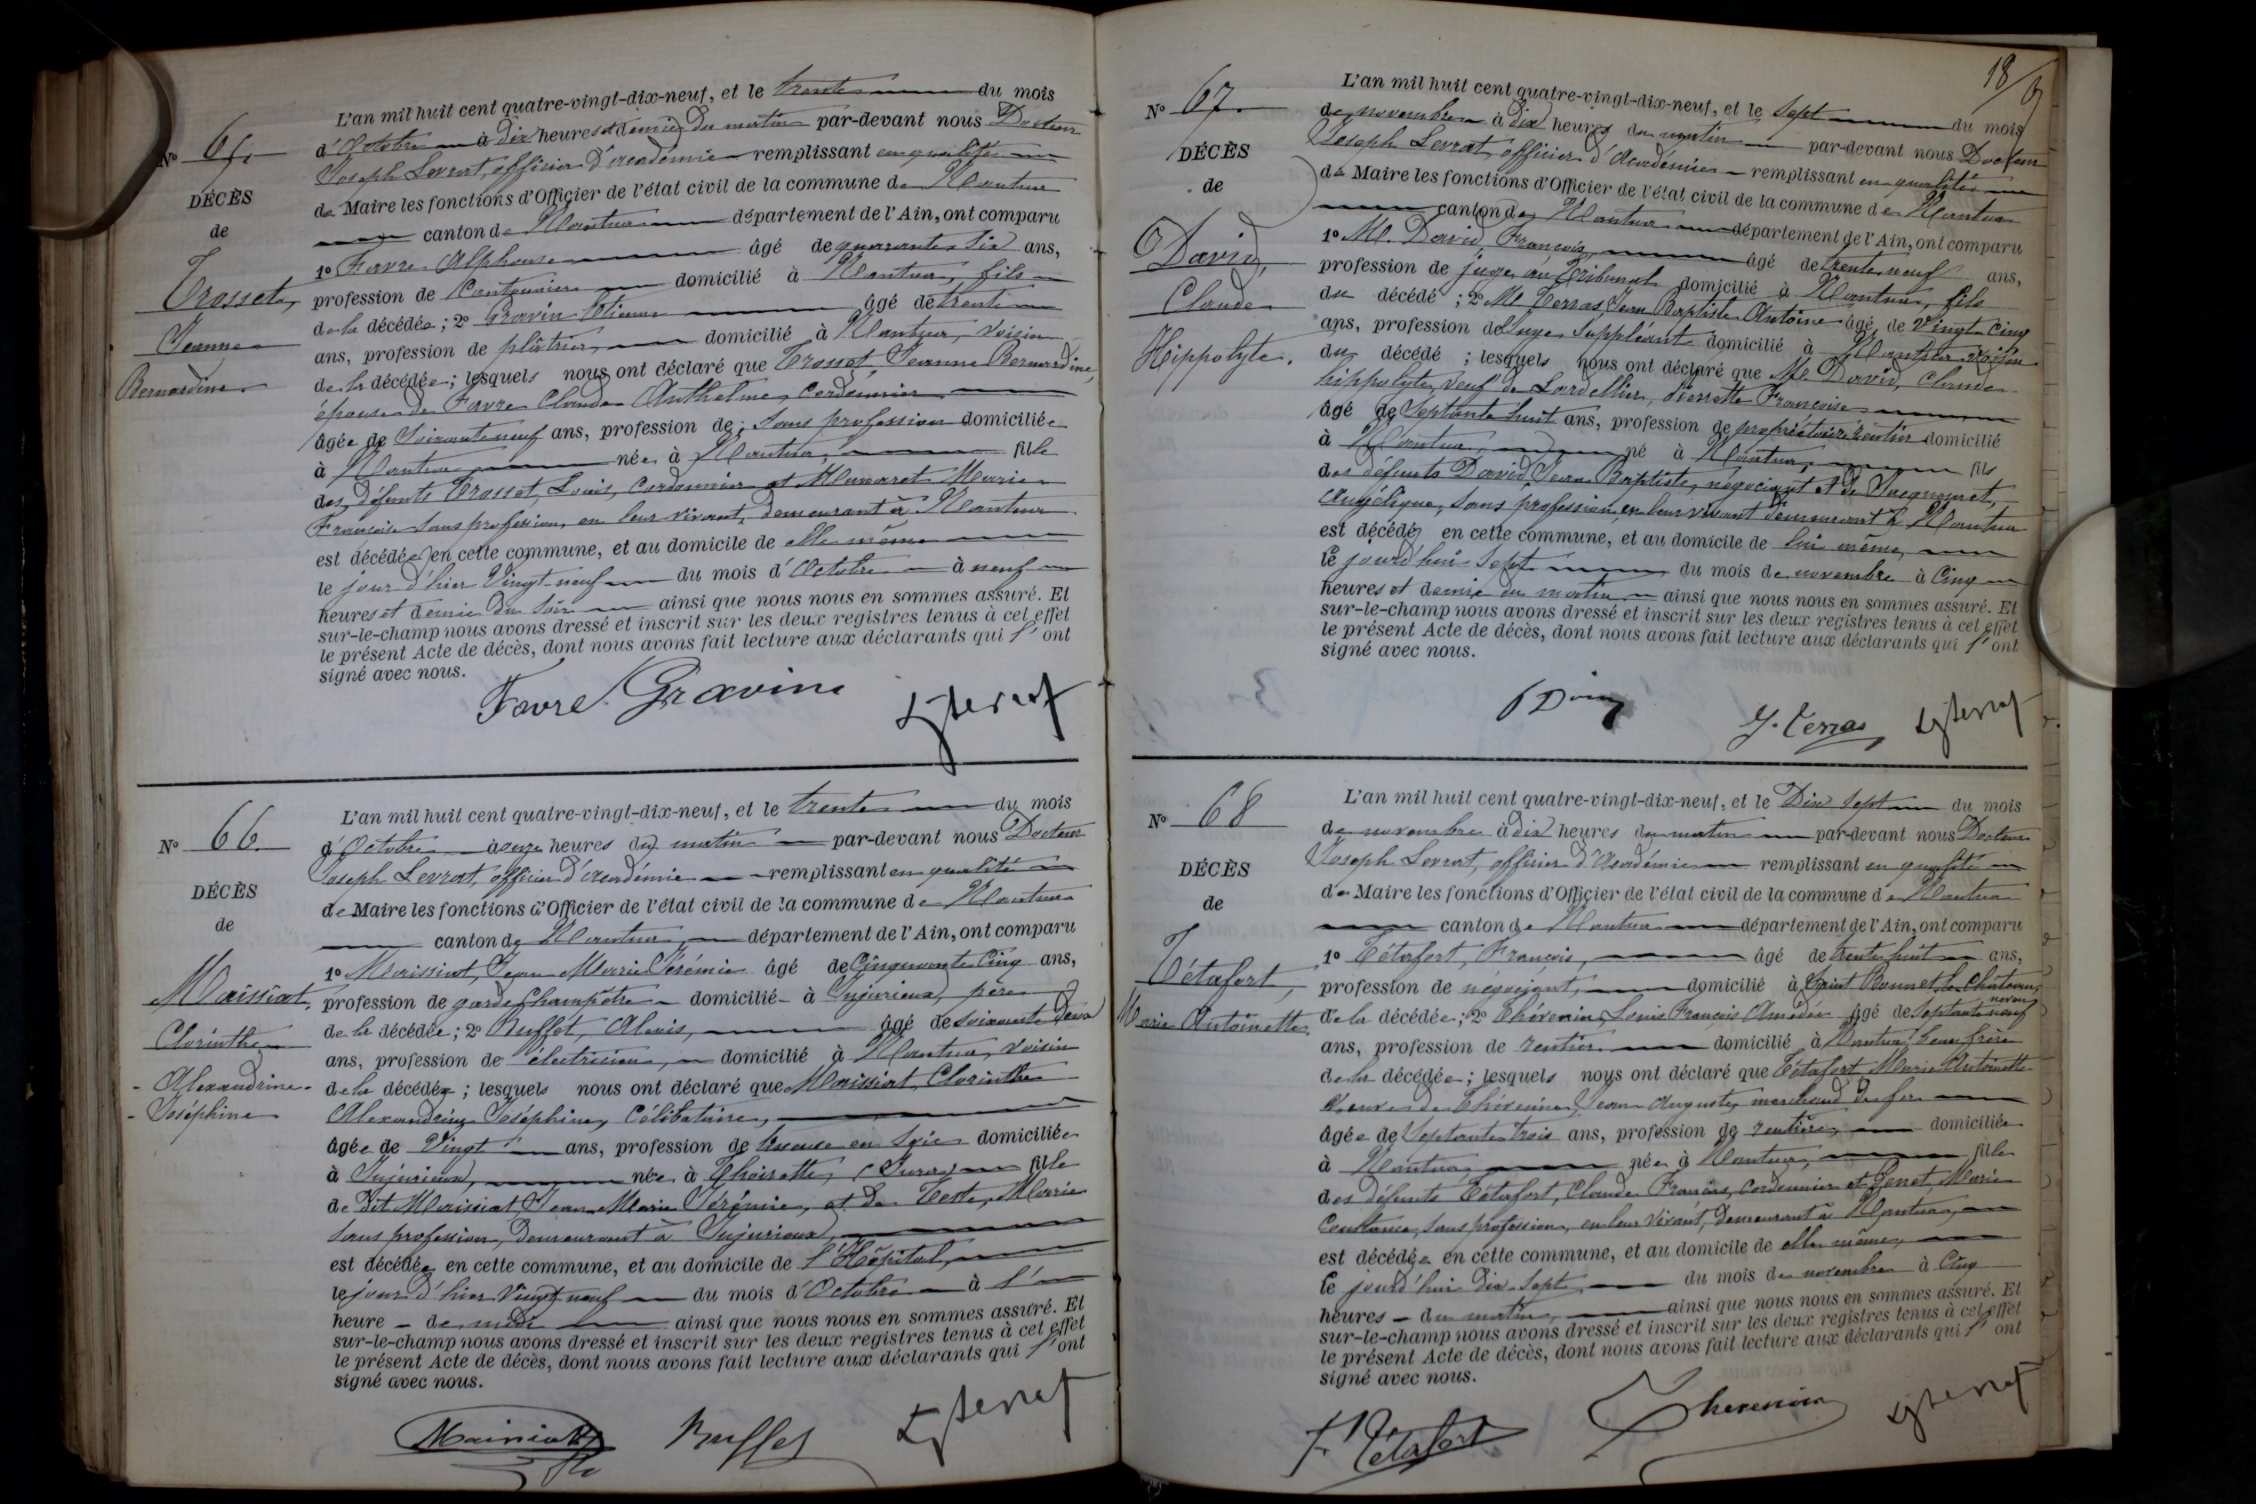 N° 65.
DÉCÈS
de
Trosset,
Jeanne
Bernardine.
L'an mil huit cent quatre-vingt-dix-neuf, et le trente du mois
d'Octobre à dix heures et demie du matin par-devant nous Docteur
Joseph Levrat, officier d'académie remplissant en qualité
de Maire les fonctions d'Officier de l'état civil de la commune de Nantua
canton de Nantua département de l'Ain, ont comparu
1° Favre Alphonse âgé de quarante six ans,
profession de Cantonnier domicilié à Nantua, fils
de la décédée; 2° Gravin Etienne âgé de trente
ans, profession de plâtrier, domicilié à Nantua, voisin
de la décédée; lesquels nous ont déclaré que Trosset, Jeanne Bernardine,
épouse de Favre Claude Anthelme, cordonnier
âgée de Soixante neuf ans, profession de sans profession domiciliée
à Nantua née à Nantua, fille
des défunts Trosset, Louis, Cordonnier et Marie
Françoise sans profession, en leur vivant, demeurant à Nantua
est décédée en cette commune, et au domicile de elle même
le jour d'hier Vingt neuf du mois d'Octobre à neuf
heures et demie du soir ainsi que nous nous en sommes assuré. Et
sur-le-champ nous avons dressé et inscrit sur les deux registres tenus à cet effet
le présent Acte de décès, dont nous avons fait lecture aux déclarants qui l'ont
signé avec nous.
Favre Gravin
N° 66.
DÉCÈS
de
Maissiat,
Clorinthe
Alexandrine
Joséphine
L'an mil huit cent quatre-vingt-dix-neuf, et le trente du mois
d'Octobre à onze heures du matin par-devant nous Docteur
Joseph Levrat, officier d'académie remplissant en qualité
de Maire les fonctions d'Officier de l'état civil de la commune de Nantua
canton de Nantua département de l'Ain, ont comparu
1° Maissiat, Jean Marie Jérémie âgé de Cinquante Cinq ans,
profession de garde Champêtre domicilié à Jujurieux, père
de la décédée; 2° Buffet, Alexis, âgé de soixante deux
ans, profession de électricien, domicilié à Nantua, voisin
de la décédée; lesquels nous ont déclaré que Maissiat, Clorinthe
Alexandrine Joséphine, Célibataire,
âgée de Vingt ans, profession de tisseuse en soie domiciliée
à Jujurieux, née à Thoirette, (Jura) fille
de Dit Maissiat, Jean Marie Jérémie, et de Teste, Marie
sans profession, demeurant à Jujurieux,
est décédée en cette commune, et au domicile de l'Hôpital,
le jour d'hier Vingt neuf du mois d'Octobre à l'
heure de midi ainsi que nous nous en sommes assuré. Et
sur-le-champ nous avons dressé et inscrit sur les deux registres tenus à cet effet
le présent Acte de décès, dont nous avons fait lecture aux déclarants qui l'ont
signé avec nous.
Maissiat Buffet
18/
N° 67.
DÉCÈS
de
David,
Claude
Hippolyte.
L'an mil huit cent quatre-vingt-dix-neuf, et le Sept du mois
de novembre à dix heures du matin par-devant nous Docteur
Joseph Levrat, officier d'Académie remplissant en qualité
de Maire les fonctions d'Officier de l'état civil de la commune de Nantua
canton de Nantua département de l'Ain, ont comparu
1° M. David, François, âgé de trente neuf ans,
profession de juge au Tribunal domicilié à Nantua, fils
du décédé; 2° M. Terras, Jean Baptiste Antoine âgé de Vingt cinq
ans, profession de Juge Suppléant domicilié à Nantua voisin
du décédé; lesquels nous ont déclaré que M. David, Claude
hippolyte, veuf de Lardellier, Pierrette Françoise
âgé de Septante huit ans, profession de propriétaire rentier domicilié
à Nantua, né à Nantua, fils
des défunts David Jean Baptiste, négociant et de Jacquemet,
Angélique, sans profession, en leur vivant demeurant à Nantua
est décédé en cette commune, et au domicile de lui même,
le jourd'hui Sept du mois de novembre à Cinq
heures et demie du matin ainsi que nous nous en sommes assuré. Et
sur-le-champ nous avons dressé et inscrit sur les deux registres tenus à cet effet
le présent Acte de décès, dont nous avons fait lecture aux déclarants qui l'ont
signé avec nous.
J. Terras
N° 68
DÉCÈS
de
Tétafort,
Marie Antoinette
L'an mil huit cent quatre-vingt-dix-neuf, et le Dix Sept du mois
de novembre à dix heures du matin par-devant nous Docteur
Joseph Levrat, officier d'Académie remplissant en qualité
de Maire les fonctions d'Officier de l'état civil de la commune de Nantua
canton de Nantua département de l'Ain, ont comparu
1° Tétafort, François, âgé de trente huit ans,
profession de négociant, domicilié à Saint Bonnet le Château, neveu
de la décédée; 2° Thévenin, Louis François Amédée âgé de Septante neuf
ans, profession de rentier domicilié à Nantua, beau frère
de la décédée; lesquels nous ont déclaré que Tétafort Marie Antoinette
Veuve de Thévenin, Jean Auguste, marchand de fer
âgée de Septante trois ans, profession de rentière, domiciliée
à Nantua, née à Nantua, fille
des défunts Tétafort, Claude François, cordonnier et Genet, Marie
Constance, sans profession, en leur vivant, demeurant à Nantua,
est décédée en cette commune, et au domicile de elle même,
le jourd'hui Dix Sept, du mois de novembre à Cinq
heures du matin, ainsi que nous nous en sommes assuré. Et
sur-le-champ nous avons dressé et inscrit sur les deux registres tenus à cet effet
le présent Acte de décès, dont nous avons fait lecture aux déclarants qui l'ont
signé avec nous.
F. Tétafort Thevenin